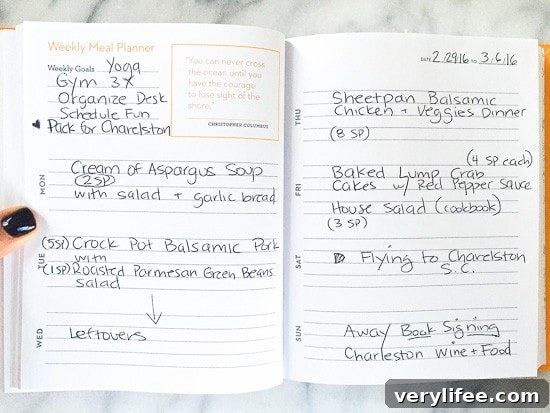 Weekly Meal Planner
Weekly Goals Yoga
Gym 3x
Organize Desk
Schedule Fun
Pack for Charelston
"You can never cross
the ocean until you
have the courage
to lose sight of the
shore."
CHRISTOPHER COLUMBUS
MON
Cream of Aspargus Soup
(2SP)
with salad + garlic bread
TUE
(5SP) Crock Pot Balsamic Pork
with
(1SP) Roasted Parmesan Green Beans
salad
WED
Leftovers
DATE 2/29/16 TO 3/6/16
THU
Sheetpan Balsamic
Chicken + Veggies Dinner
(8 SP)
FRI
(4 SP each)
Baked Lump Crab
Cakes w/ Red Pepper Sauce
House Salad (cookbook)
(3 SP)
SAT
Flying to Charelston
S.C.
SUN
Away Book Signing
Charleston Wine + Food
verylifee.com